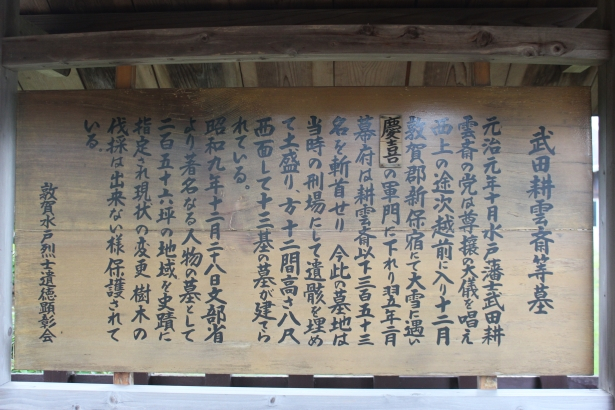 武田耕雲斎等墓
元治元年十月水戸藩士武田耕
雲斎の党は尊攘の大儀を唱え
西上の途次越前に入り十二月
敦賀郡新保宿にて大雪に遇い
慶喜の軍門に下れり翌五年二月
幕府は耕雲斎以下三百五十三
名を斬首せり 今此の墓地は
当時の刑場にして遺骸を埋め
て土盛り、方十二間高さ八尺
西面して十三基の墓が建てら
れている。
昭和九年十二月二十八日文部省
より著名なる人物の墓として
二百五十六坪の地域を史蹟に
指定され現状の変更、樹木の
伐採は出来ない様、保護されて
いる。
敦賀水戸烈士遺徳顕彰会